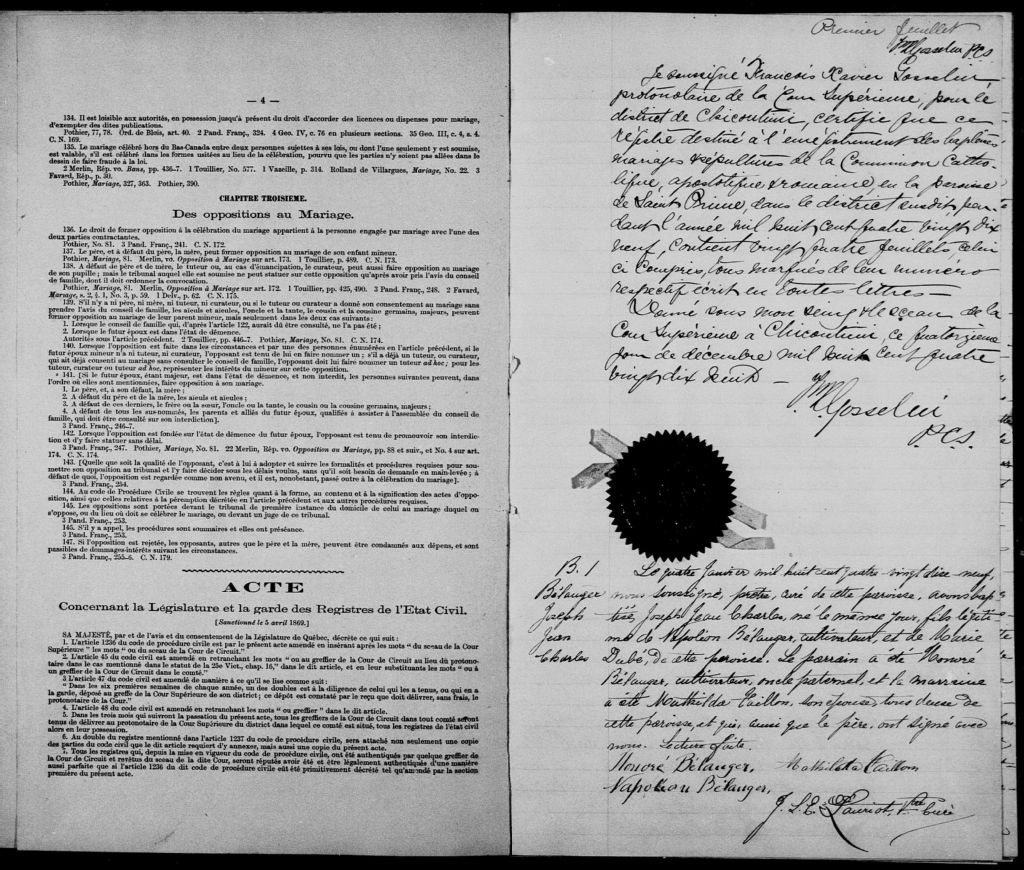 — 4 —
134. Il est loisible aux autorités, en possession jusqu'à présent du droit d'accorder des licences ou dispenses pour mariage,
d'exempter des dites publications.
Pothier, 77, 78. Ord. de Blois, art. 40. 2 Pand. Franç., 324. 4 Geo. IV, c. 76 en plusieurs sections. 35 Geo. III, c. 4, s. 4.
C. N. 169.
135. Le mariage célébré hors du Bas-Canada entre deux personnes sujettes à ses lois, ou dont l'une seulement y est soumise,
est valable, s'il est célébré dans les formes usitées au lieu de la célébration, pourvu que les parties n'y soient pas allées dans le
dessein de faire fraude à la loi.
2 Merlin, Rép. vo. Bans, pp. 436-7. 1 Touillier, No. 577. 1 Vazeille, p. 314. Rolland de Villargues, Mariage, No. 22. 3
Favard, Rép., p. 30.
Pothier, Mariage, 327, 363. Pothier, 390.
CHAPITRE TROISIEME.
Des oppositions au Mariage.
136. Le droit de former opposition à la célébration du mariage appartient à la personne engagée par mariage avec l'une des
deux parties contractantes.
Pothier, No. 81. 3 Pand. Franç., 241. C. N. 172.
137. Le père, et à défaut du père, la mère, peut former opposition au mariage de son enfant mineur.
Pothier, Mariage, 81. Merlin, vo. Opposition à Mariage sur art. 173. 1 Touillier, p. 489. C. N. 173.
138. A défaut de père et de mère, le tuteur ou, au cas d'émancipation, le curateur, peut aussi faire opposition au mariage
de son pupille; mais le tribunal auquel elle est soumise ne peut statuer sur cette opposition qu'après avoir pris l'avis du conseil
de famille, dont il doit ordonner la convocation.
Pothier, Mariage, 81. Merlin, Opposition à Mariage sur art. 172. 1 Touillier, pp. 425, 490. 3 Pand. Franç., 248. 2 Favard,
Mariage, s. 2, § 1, No. 3, p. 59. 1 Delv., p. 62. C. N. 175.
139. S'il n'y a ni père, ni mère, ni tuteur, ni curateur, ou si le tuteur ou curateur a donné son consentement au mariage sans
prendre l'avis du conseil de famille, les aïeuls et aïeules, l'oncle et la tante, le cousin et la cousine germains, majeurs, peuvent
former opposition au mariage de leur parent mineur, mais seulement dans les deux cas suivants:
1. Lorsque le conseil de famille qui, d'après l'article 122, aurait dû être consulté, ne l'a pas été;
2. Lorsque le futur époux est dans l'état de démence.
Autorités sous l'article précédent. 2 Touillier, pp. 446-7. Pothier, Mariage, No. 81. C. N. 174.
140. Lorsque l'opposition est faite dans les circonstances et par une des personnes énumérées en l'article précédent, si le
futur époux mineur n'a ni tuteur, ni curateur, l'opposant est tenu de lui en faire nommer un; s'il a déjà un tuteur, ou curateur,
qui ait déjà consenti au mariage sans consulter le conseil de famille, l'opposant doit lui faire nommer un tuteur ad hoc; pour les
tuteur, curateur ou tuteur ad hoc, représenter les intérêts du mineur sur cette opposition.
141. [Si le futur époux, étant majeur, est dans l'état de démence, et non interdit, les personnes suivantes peuvent, dans
l'ordre où elles sont mentionnées, faire opposition à son mariage.
1. Le père, et, à son défaut, la mère;
2. A défaut du père et de la mère, les aïeuls et aïeules;
3. A défaut de ces derniers, le frère ou la sœur, l'oncle ou la tante, le cousin ou la cousine germains, majeurs;
4. A défaut de tous les sus-nommés, les parents et alliés du futur époux, qualifiés à assister à l'assemblée du conseil de
famille, qui doit être consulté sur son interdiction].
3 Pand. Franç., 246-7.
142. Lorsque l'opposition est fondée sur l'état de démence du futur époux, l'opposant est tenu de promouvoir son interdic-
tion et d'y faire statuer sans délai.
3 Pand. Franç., 247. Pothier, Mariage, No. 81. 22 Merlin, Rép. vo. Opposition au Mariage, pp. 88 et suiv., et No. 4 sur art.
174. C. N. 174.
143. [Quelque soit la qualité de l'opposant, c'est à lui à adopter et suivre les formalités et procédures requises pour sou-
mettre son opposition au tribunal et l'y faire décider sous les délais voulus, sans qu'il soit besoin de demande en main-levée; à
défaut de quoi, l'opposition est regardée comme non avenu, et il est, nonobstant, passé outre à la célébration du mariage].
3 Pand. Franç., 254.
144. Au code de Procédure Civile se trouvent les règles quant à la forme, au contenu et à la signification des actes d'oppo-
sition, ainsi que celles relatives à la péremption décrétée en l'article précédent et aux autres procédures requises.
145. Les oppositions sont portées devant le tribunal de première instance du domicile de celui au mariage duquel on
s'oppose, ou du lieu où doit se célébrer le mariage, ou devant un juge de ce tribunal.
3 Pand. Franç., 253.
146. S'il y a appel, les procédures sont sommaires et elles ont préséance.
3 Pand. Franç., 253.
147. Si l'opposition est rejetée, les opposants, autres que le père et la mère, peuvent être condamnés aux dépens, et sont
passibles de dommages-intérêts suivant les circonstances.
3 Pand. Franç., 255-6. C. N. 179.
ACTE
Concernant la Législature et la garde des Registres de l'Etat Civil.
[Sanctionné le 5 avril 1869.]
SA MAJESTÉ, par et de l'avis et du consentement de la Législature de Québec, décrète ce qui suit:
1. L'article 1236 du code de procédure civile est par le présent acte amendé en insérant après les mots "du sceau de la Cour
Supérieure" les mots "ou du sceau de la Cour de Circuit."
2. L'article 45 du code civil est amendé en retranchant les mots "ou au greffier de la Cour de Circuit au lieu du protono-
taire dans le cas mentionné dans le statut de la 25e Vict., chap. 16," dans le dit article, et en leur substituants les mots "ou à
un greffier de la Cour de Circuit dans le comté."
3 L'article 47 du code civil est amendé de manière à ce qu'il se lise comme suit:
"Dans les six premières semaines de chaque année, un des doubles est à la diligence de celui qui les a tenus, ou qui en a
la garde, déposé au greffe de la Cour Supérieure de son district; ce dépôt est constaté par le reçu que doit délivrer, sans frais, le
protonotaire de la Cour."
4. L'article 48 du code civil est amendé en retranchant les mots "ou greffier" dans le dit article.
5. Dans les trois mois qui suivront la passation du présent acte, tous les greffiers de la Cour de Circuit dans tout comté seront
tenus de délivrer au protonotaire de la Cour Supérieure du district dans lequel ce comté est situé, tous les registres de l'état civil
alors en leur possession.
6. Au double du registre mentionné dans l'article 1237 du code de procédure civile, sera attaché non seulement une copie
des parties du code civil que le dit article requiert d'y annexer, mais aussi une copie du présent acte.
7. Tous les registres qui, depuis la mise en vigueur du code de procédure civile, ont été authentiqués par quelque greffier de
la Cour de Circuit et revêtus du sceau de la dite Cour, seront réputés avoir été et être légalement authentiqués d'une manière
aussi parfaite que si l'article 1236 du dit code de procédure civile eût été primitivement décrété tel qu'amendé par la section
première du présent acte.
Premier feuillet
Gosselin P.C.S.
Je soussigné François Xavier Gosselin
protonotaire de la Cour Supérieure, pour le
district de Chicoutimi, certifie que ce
régistre destiné à l'enregistrement des baptêmes
mariages & sépultures de la Communion Catho-
lique, apostolique & romaine, en la paroisse
de Saint Prime, dans le district susdit, pen-
dant l'année mil huit cent quatre vingt dix
neuf, contient vingt quatre feuillets, celui
ci compris, tous marqués de leur numéro
respectif écrit en toutes lettres
Donné sous mon seing & le sceau de la
Cour Supérieure à Chicoutimi, ce quatorzième
jour de décembre mil huit cent quatre
vingt dix huit —
Gosselin
P.C.S.
B. 1
Bélanger
Joseph
Jean
Charles
Le quatre Janvier mil huit cent quatre vingt dix neuf,
nous soussigné, prêtre, curé de cette paroisse, avons bap-
tisé Joseph Jean Charles, né le même jour, fils légiti-
me de Napoléon Bélanger, cultivateur, et de Marie
Dubé, de cette paroisse. Le parrain a été Honoré
Bélanger, cultivateur, oncle paternel, et la marraine
a été Mathilda Taillon, son épouse, tous deux de
cette paroisse, et qui, ainsi que le père, ont signé avec
nous. Lecture faite.
Honoré Bélanger, Mathilda Taillon
Napoléon Bélanger,
J. S. E. Ptre Curé